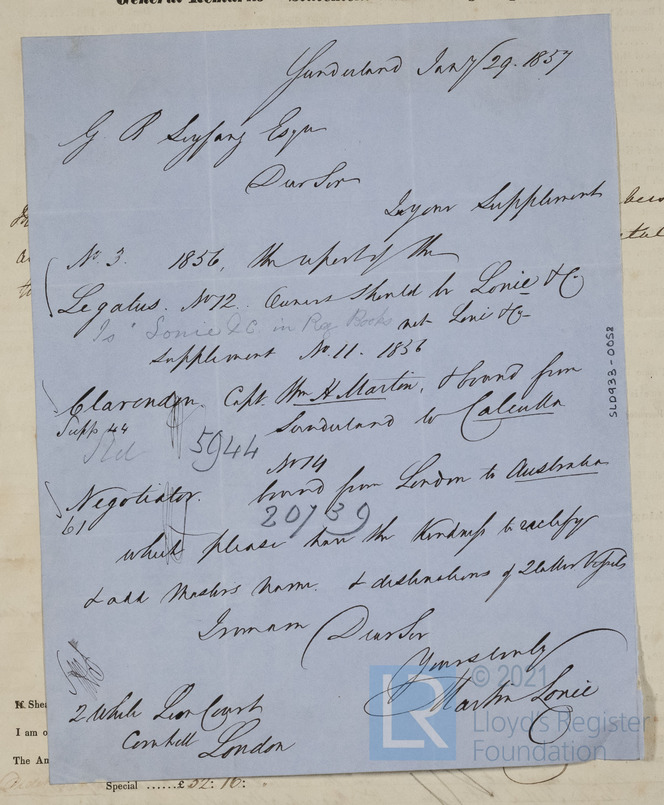 Sunderland Jany 29. 1857
G. B. Seyfang Esqr
Dear Sir
In your Supplement
No 3. 1856, the report of the
Legatus. No 12. Owners should be Lonie & Co
Is "Lonie & C. in Reg Books not Loni & Co
Supplement No. 11. 1856
Clarendon, Capt. Wm H Martin, & bound from
Supp 44
Sunderland to Calcutta
5944
No 14
Negotiator. bound from London to Australia
61
20739
which please have the kindness to rectify
& add Masters Name. & destinations of 2 latter Vessels
I remain Dear Sir
Yours truly
Martin Lonie
2 White Lion Court
Cornhill London
SLD933-0058
© 2021
LR
Lloyd's Register
Foundation
General Remarks
I am o
The Am
Special ......£ 52: 16: